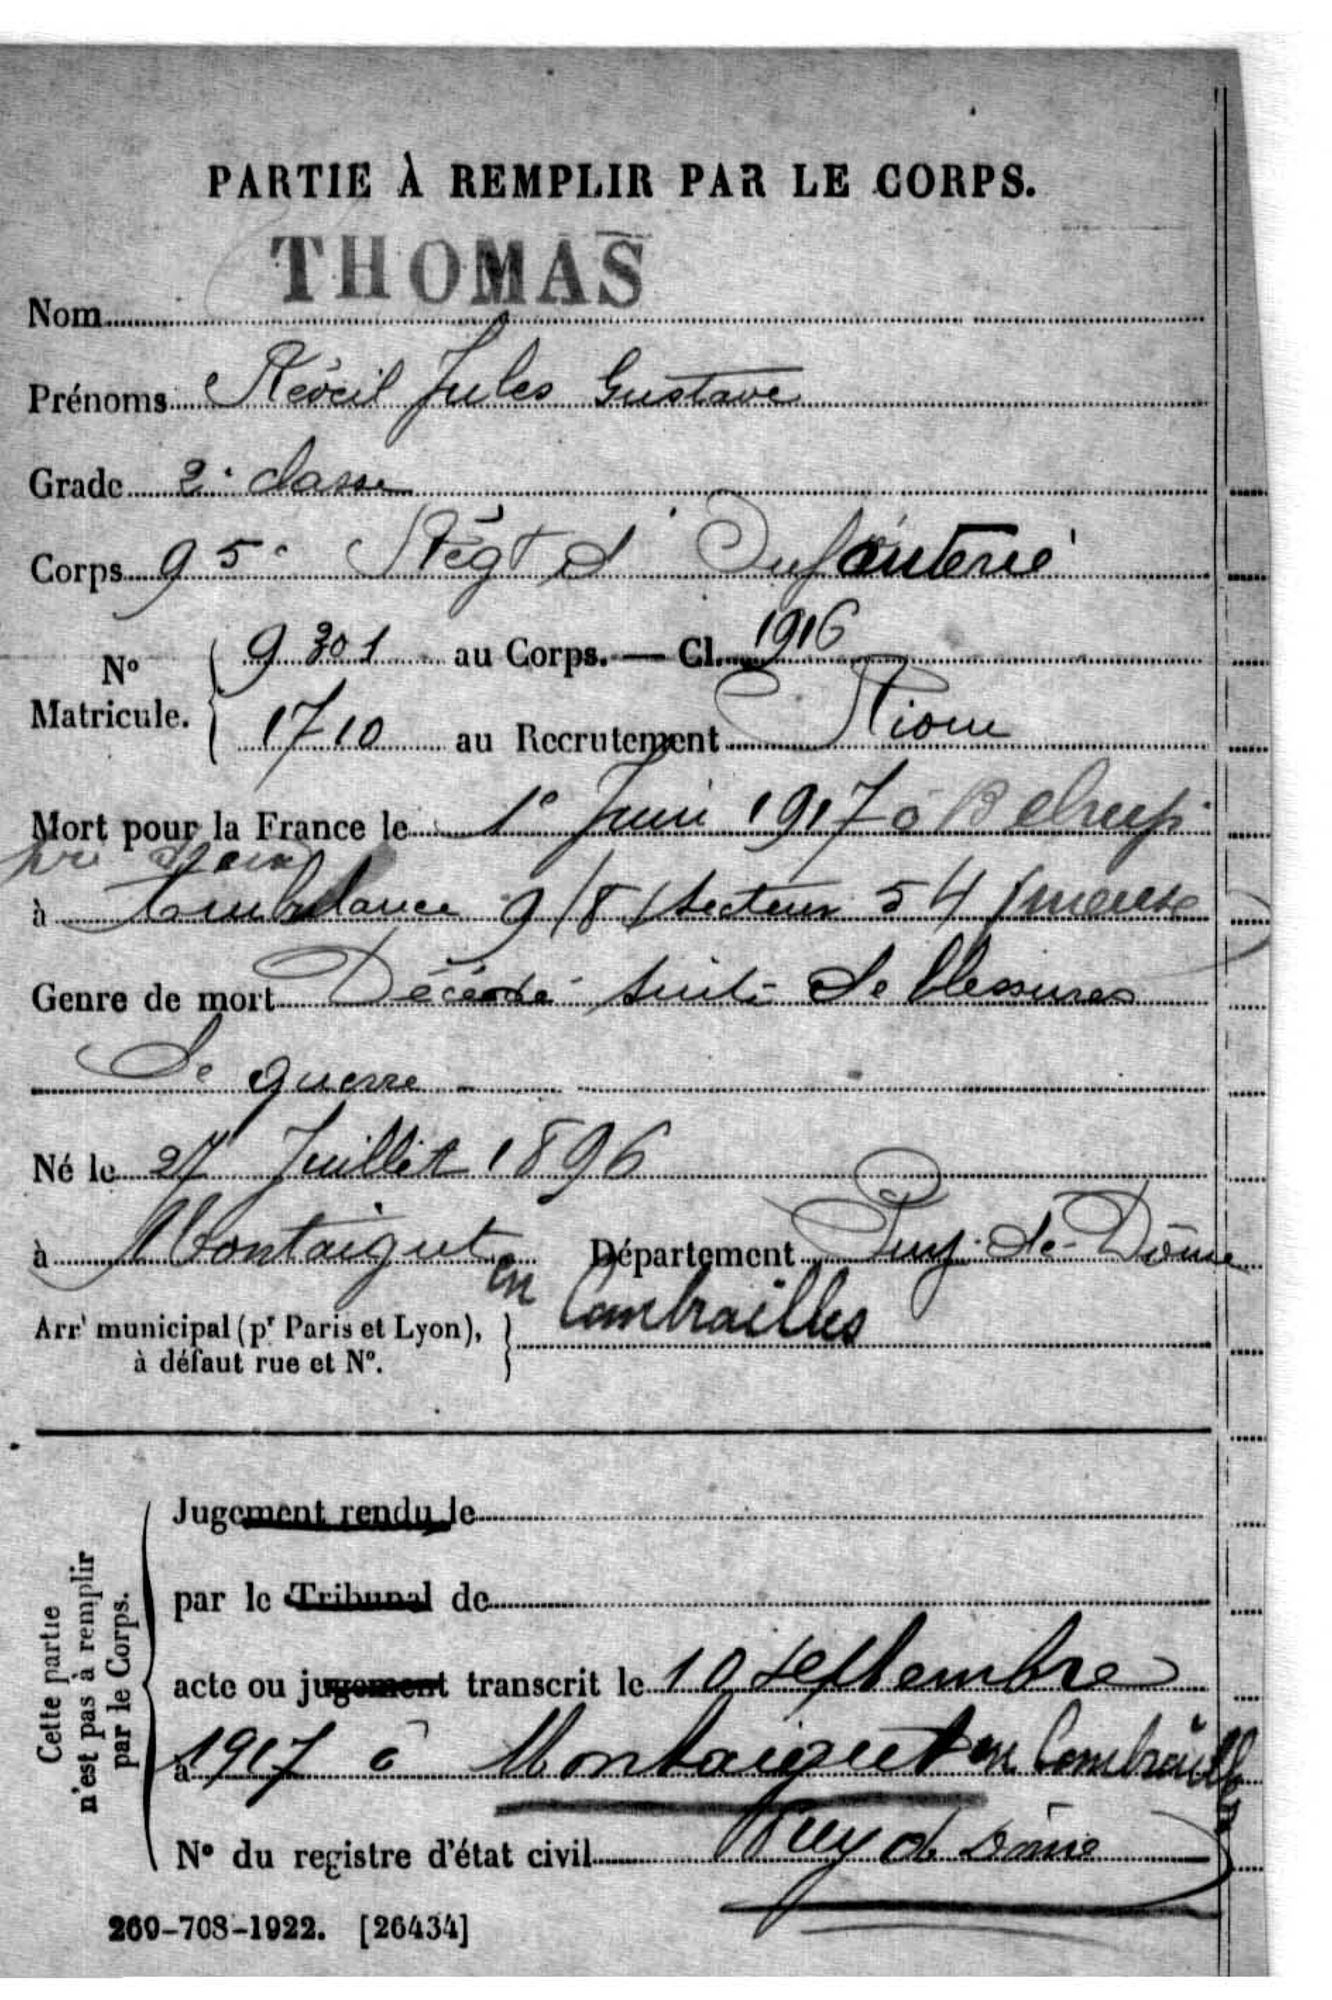 PARTIE À REMPLIR PAR LE CORPS.
THOMAS
Nom
Prénoms Réveil Jules Gustave
Grade 2e classe
Corps 95e Régt d'Infanterie
No Matricule. 9301 au Corps. — Cl. 1916
1710 au Recrutement Riom
Mort pour la France le 1e Juin 1917 à Belrupt
à Ambulance 9/8 secteur 54 Meuse
Genre de mort Décédé suite de blessures
de guerre
Né le 27 Juillet 1896
à Montaigut en Département Puy-de-Dôme
Arrt municipal (pr Paris et Lyon), à défaut rue et No. Combrailles
Cette partie n'est pas à remplir par le Corps.
Jugement rendu le
par le Tribunal de
acte ou jugement transcrit le 10 septembre
à 1917 à Montaigut en Combrailles
No du registre d'état civil Puy de Dôme
269-708-1922. [26434]